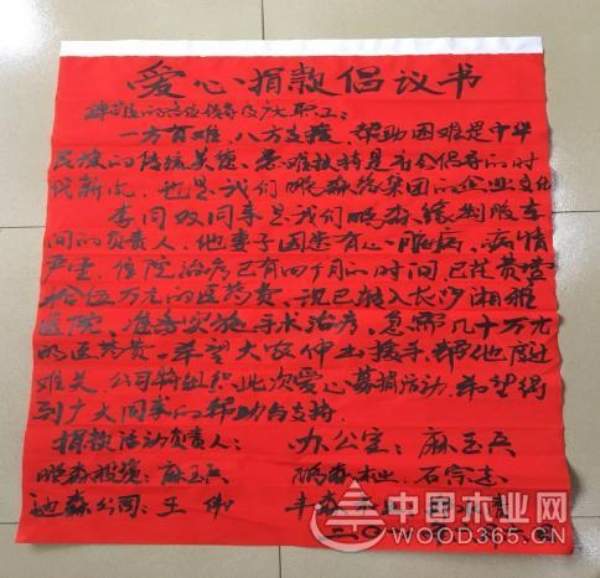 爱心捐款倡议书
尊敬的各位领导及广大职工：
一方有难，八方支援，帮助困难是中华
民族的传统美德、患难扶持是社会倡导的时
代新风，也是我们鹏森缘集团的企业文化
李同双同事是我们鹏森缘刨股车
间的负责人，他妻子因患有心脏病，病情
严重，住院治疗已有四个月的时间，已花费
拾伍万元的医药费、现已转入长沙湘雅
医院、准备实施手术治疗，急需几十万元
的医药费。希望大家伸出援手，帮他度过
难关，公司将组织此次爱心募捐活动，希望得
到广大同事的帮助与支持．
捐款活动负责人： 办公室：麻玉兵
鹏森投资：麻玉兵 鹏森木业：石宗志
迪森公司：王伟 丰森
二〇
中国木业网
WOOD365.CN